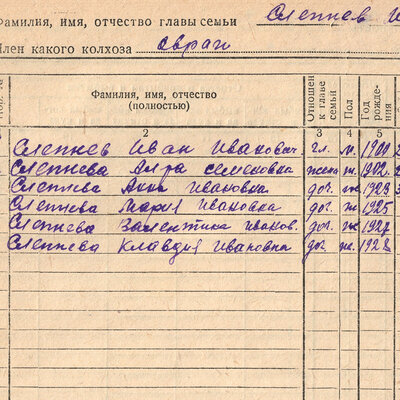 Фамилия, имя, отчество главы семьи Слепнев И
Член какого колхоза Овраги
Фамилия, имя, отчество (полностью) Отношен. к главе семьи Пол Год рожде- ния
2 3 4 5
Слепнев Иван Иванович гл. м. 1900
Слепнева семеновна жена ж. 1902
Слепнева Анна Ивановна доч. ж 1923
Слепнева Мария Ивановна доч. ж 1925
Слепнева Валентина Иванов. доч. ж 1927
Слепнева Клавдия Ивановна доч. ж. 1928